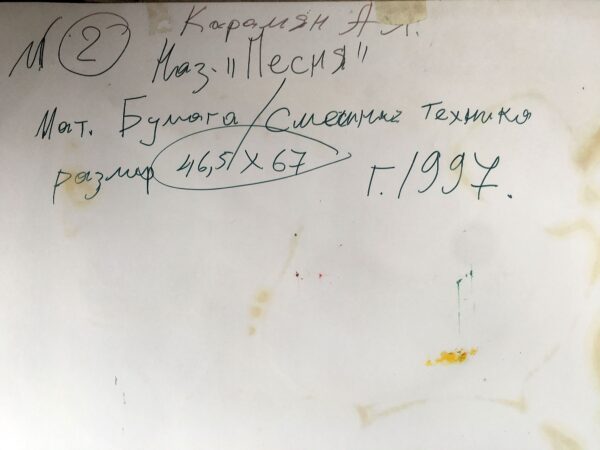 N 2 Карамян А Л.
Наз. „Песня"
Мат. Бумага / Смешнна техника
размер 46,5 X 67 Г. 1997.